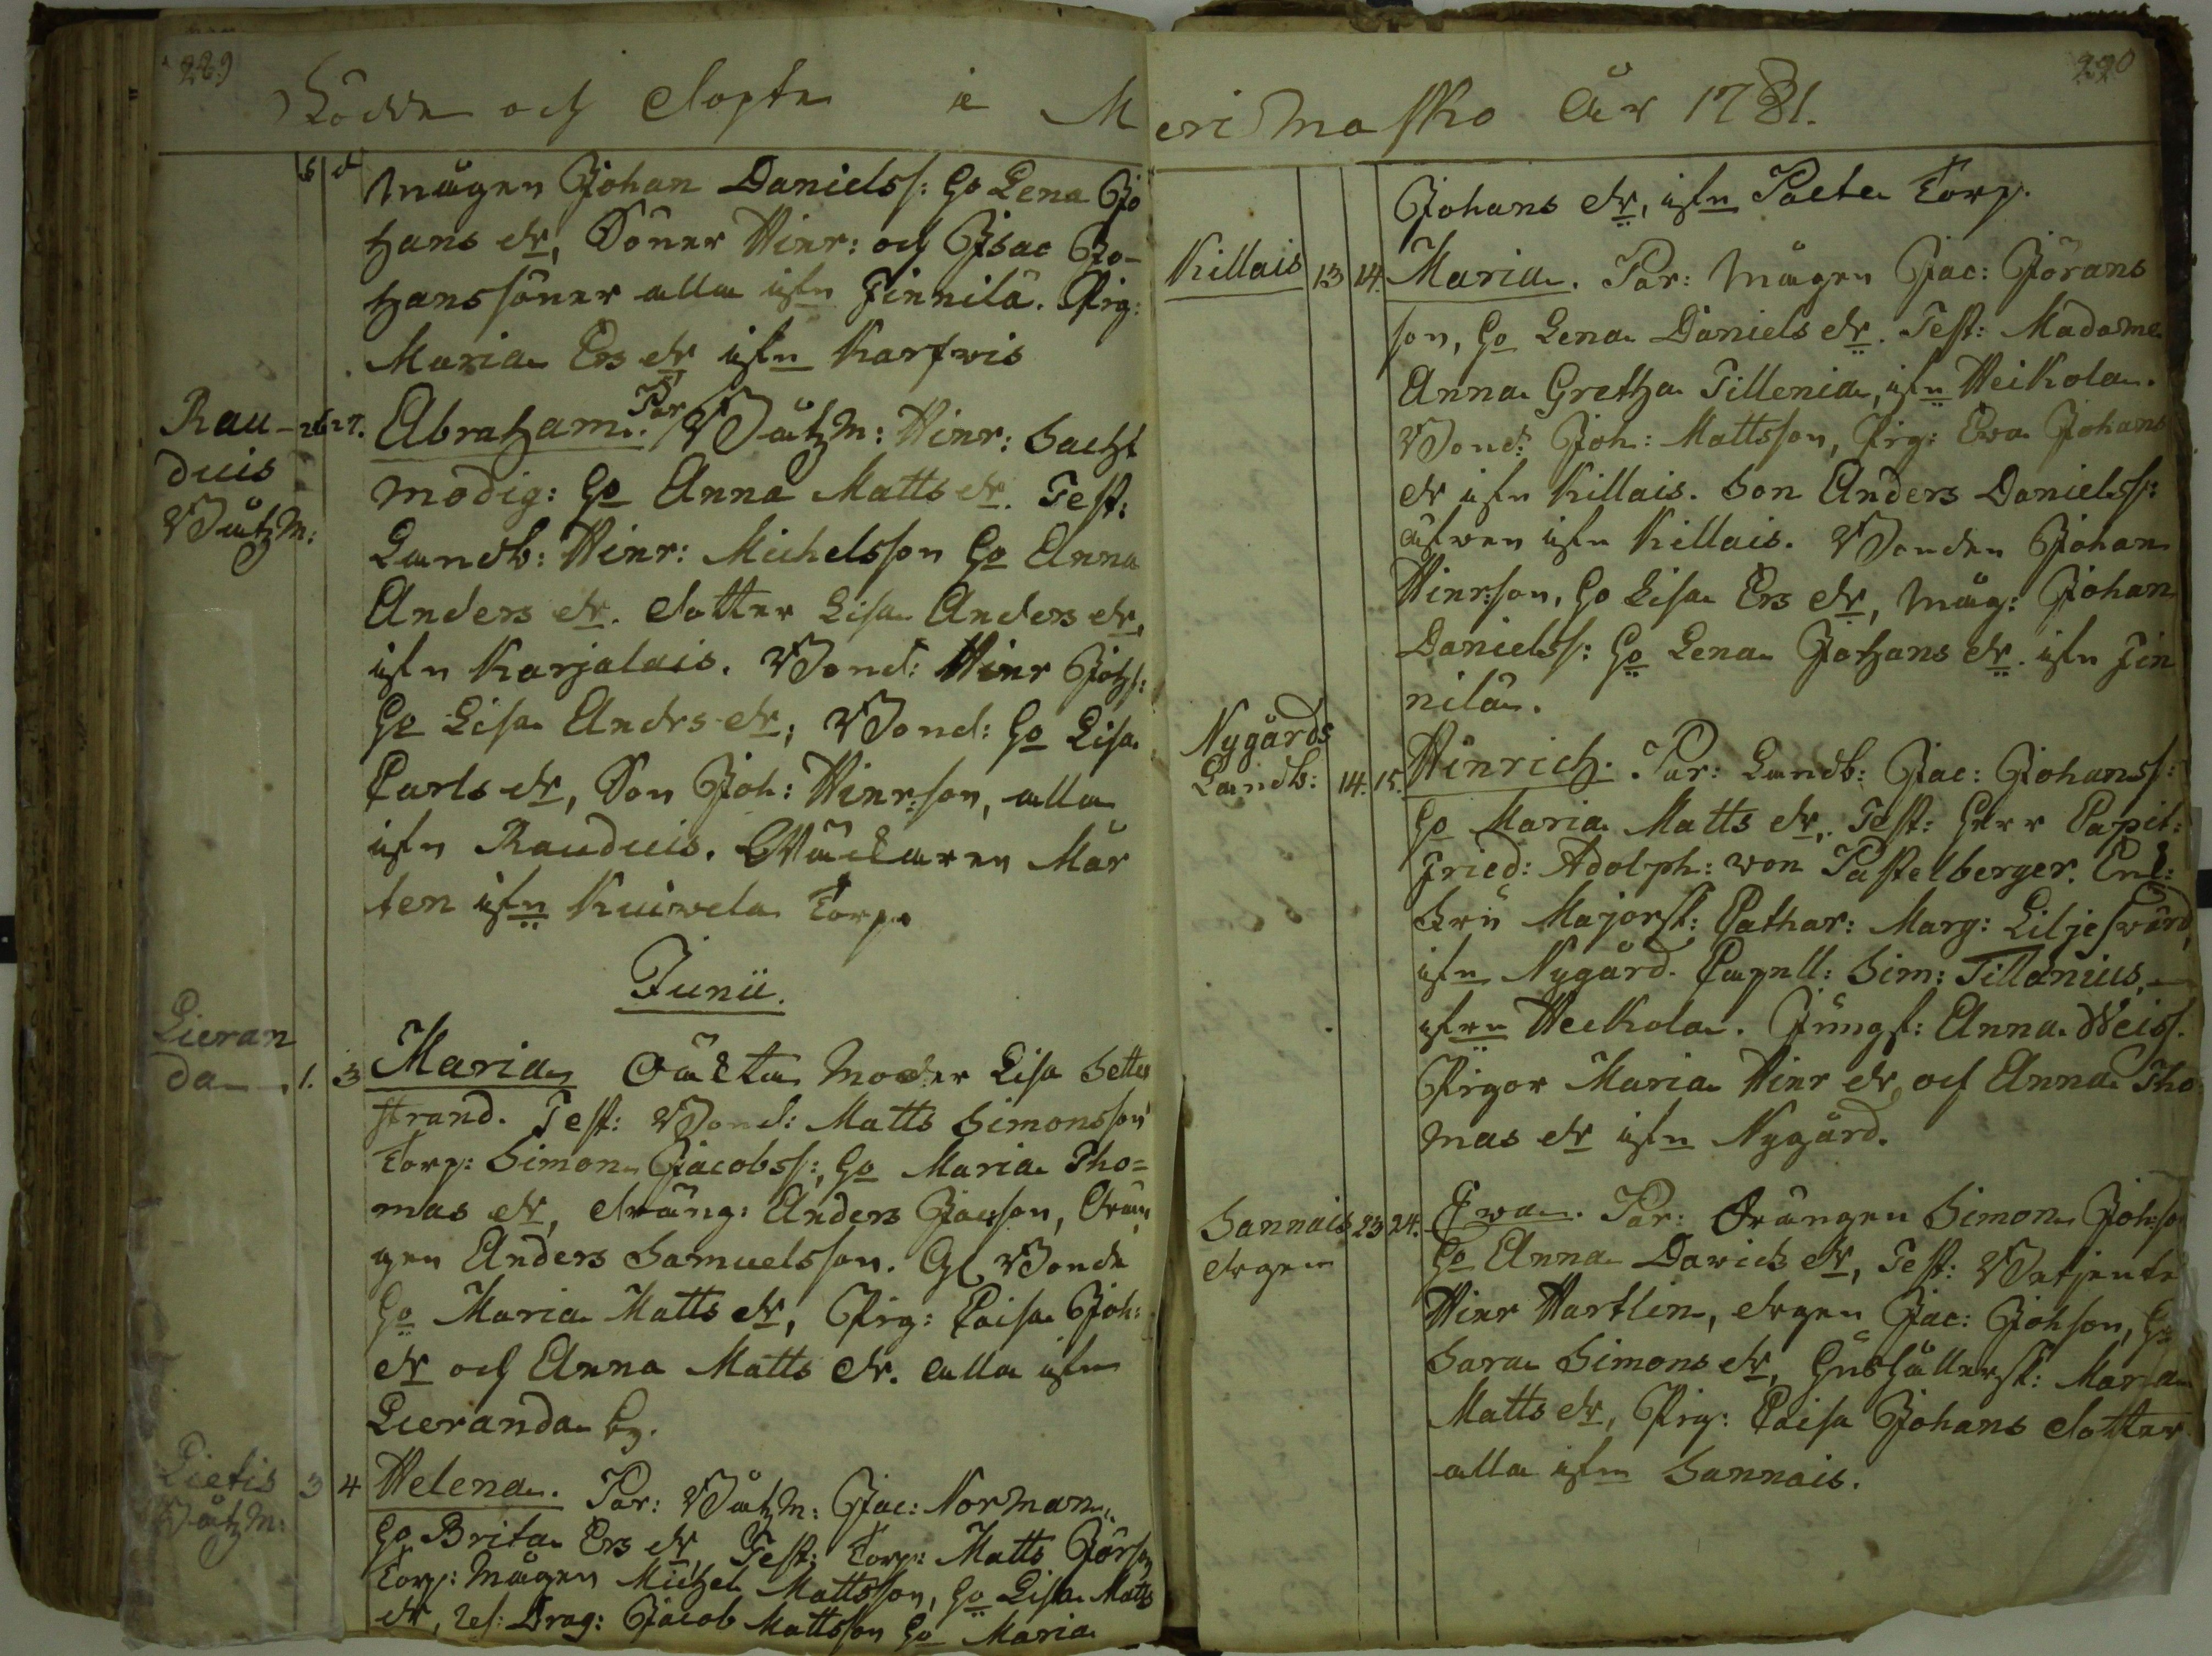 289
290
Födde och döpte i Merimasko År 1781.
f d
Mågen Johan Danielss: Ho Lena Jo
hans dr, Söner Hinr: och Isac Jo-
hanssöner alla ifrn Finnilä. Pig:
Maria Ers dr ifrn Karfwis
Rau-
duis
Båtzm:
26 27.
Abraham. Par Båtzm: Hinr: Sacht
modig: Ho Anna Matts dr. Test:
Landb: Hinr: Michelsson Ho Anna
Anders dr. dotter Lisa Anders dr,
ifrn Karjalais. Bond: Hinr Johs:
Ho Lisa Andrs dr; Bond: Ho Lisa
Carls dr, Son Joh: Hinrson, alla
ifrn Rauduis. Mår
ten ifrn Kuiwela Torp.
Junii.
Lieran
da
1. 3
Maria Oäkta Moder Lisa Setter
strand. Test: Bond: Matts Simonsson
Torp: Simon Jacobss: Ho Maria Tho=
mas dr, dräng: Anders Jacson, drän
gen Anders Samuelsson. Gl Bonde
Ho Maria Matts dr, Pig: Caisa Joh:
dr och Anna Matts dr. alla ifrn
Lieranda by.
Lietis
Båtzm:
3 4
Helena. Par: Båtzm: Jac: Norman
Ho Brita Ers dr, Test: Torp: Matts Jörson
Torp: Mågen Michel Mattsson, Ho Lisa Matts
dr, Drag: Jacob Mattsson Ho Maria
Johans dr, ifrn Torp.
Killais
13 14.
Maria. Par: Mågen Jac: Jörans
son, Ho Lena Daniels dr. Test: Madame
Anna Gretha Tillenia, ifrn Heikola.
Bond: Joh: Mattsson, Pig: Ewa Johans
dr ifrn Killais. Son Anders Danielss:
äfwen ifrn Killais. Bonden Johan
Hinrson, Ho Lisa Ers dr, Måg: Johan
Danielss: Ho Lena Johans dr. ifrn Fin
nilä.
Nygårds
Landb:
14. 15.
Hinrich. Par: Landb: Jac: Johanss:
Ho Maria Matts dr. Test: Herr Capit:
Fried: Adolph: von Pastelberger.
Fru Majorsk: Cathar: Marg: Liljeswärd,
ifrn Nygård. Capell: Sim: Tillanius,
ifrn Heikola. Jungf: Anna Weiss.
Pigor Maria Hinr dr och Anna Tho
mas dr ifrn Nygård.
Sannais
drgen
23 24.
Ewa. Par: Drängen Simon Johso
Ho Anna Davids dr, Test: Betjente
Hinr Hartlin, drgen Jac: Johson, Ho
Sara Simons dr, Hushållersk: Maria
Matts dr, Pig: Caisa Johans dotter
alla ifrn Sannais.